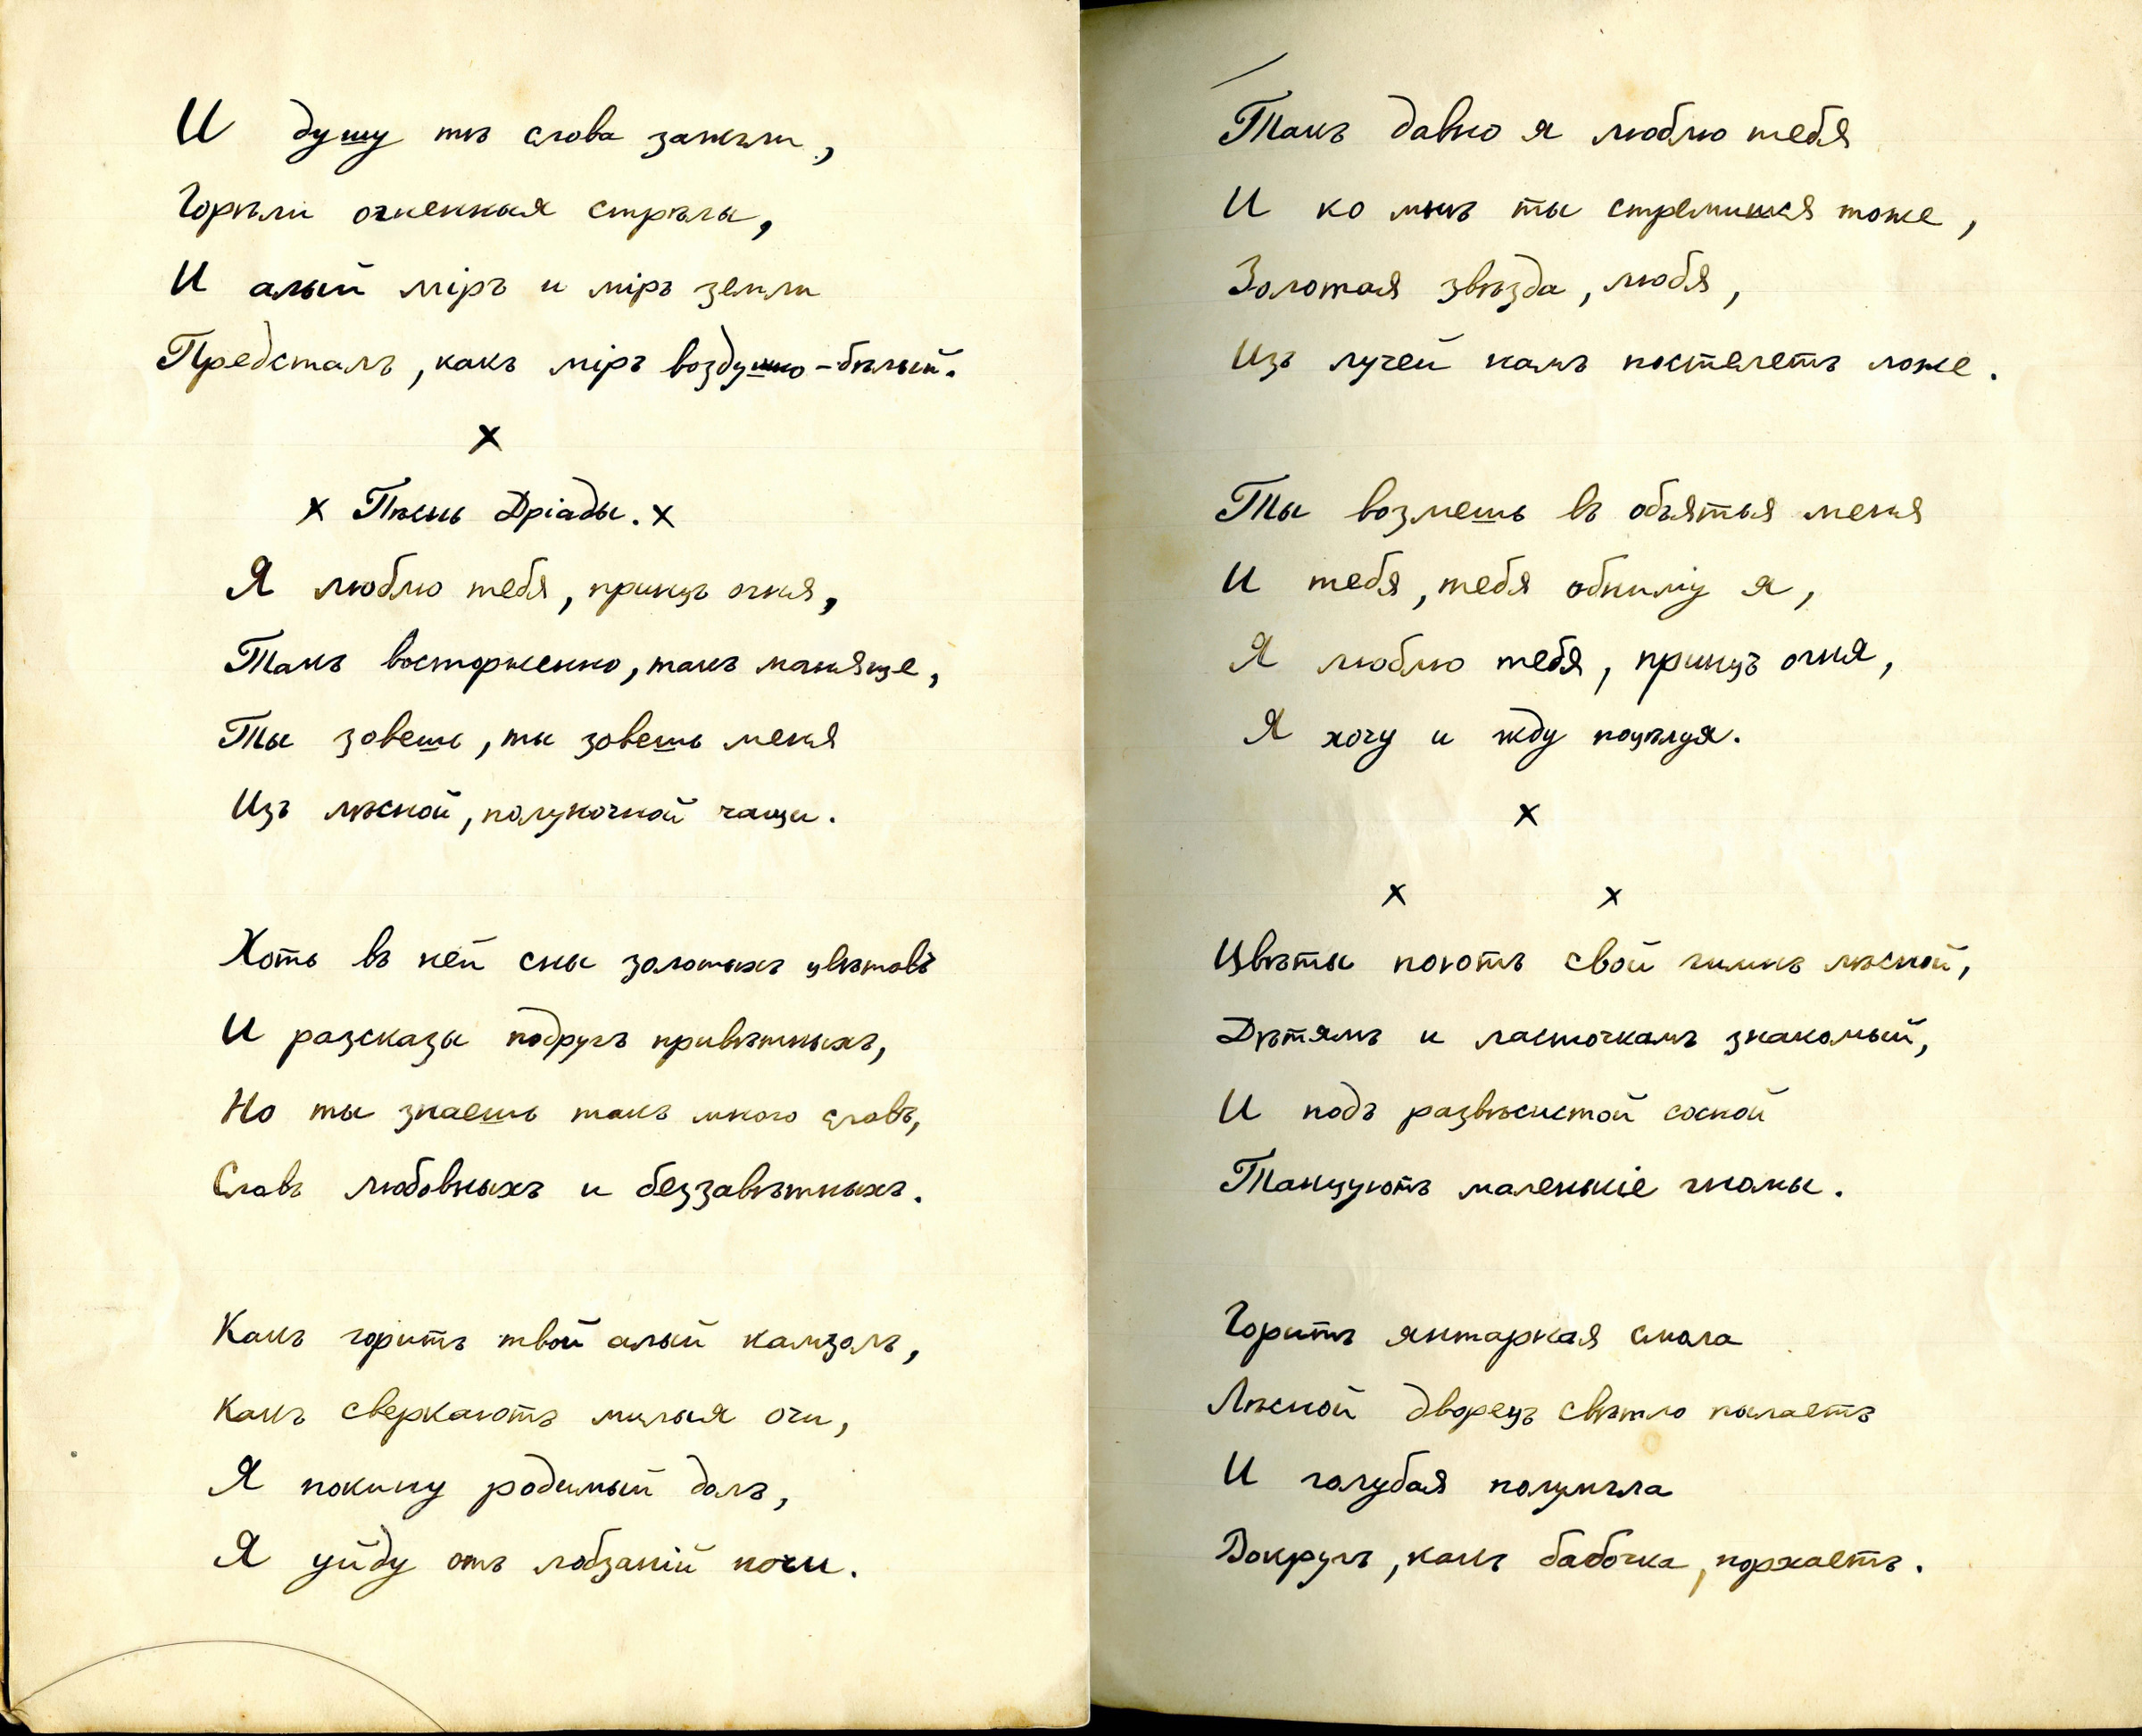 И душу тѣ слова зажгли,
Горѣли огненныя стрѣлы,
И алый міръ и міръ земли
Предсталъ, какъ міръ воздушно-бѣлый.
х
х Пѣснь Дріады. х
Я люблю тебя, принцъ огня,
Такъ восторженно, такъ маняще,
Ты зовешь, ты зовешь меня
Изъ лѣсной, полуночной чащи.
Хоть въ ней сны золотыхъ цвѣтовъ
И разсказы подругъ привѣтныхъ,
Но ты знаешь такъ много словъ,
Словъ любовныхъ и беззавѣтныхъ.
Какъ горитъ твой алый камзолъ,
Какъ сверкаютъ милыя очи,
Я покину родимый долъ,
Я уйду отъ лобзаній ночи.
Такъ давно я люблю тебя
И ко мнѣ ты стремишься тоже,
Золотая звѣзда, любя,
Изъ лучей намъ постелетъ ложе.
Ты возмешь въ объятья меня
И тебя, тебя обниму я,
Я люблю тебя, принцъ огня,
Я хочу и жду поцѣлуя.
х
х х
Цвѣты поютъ свой гимнъ лѣсной,
Дѣтямъ и ласточкамъ знакомый,
И подъ развѣсистой сосной
Танцуютъ маленькіе гномы.
Горитъ янтарная смола
Лѣсной дворецъ свѣтло пылаетъ
И голубая полумгла
Вокругъ, какъ бабочка, порхаетъ.